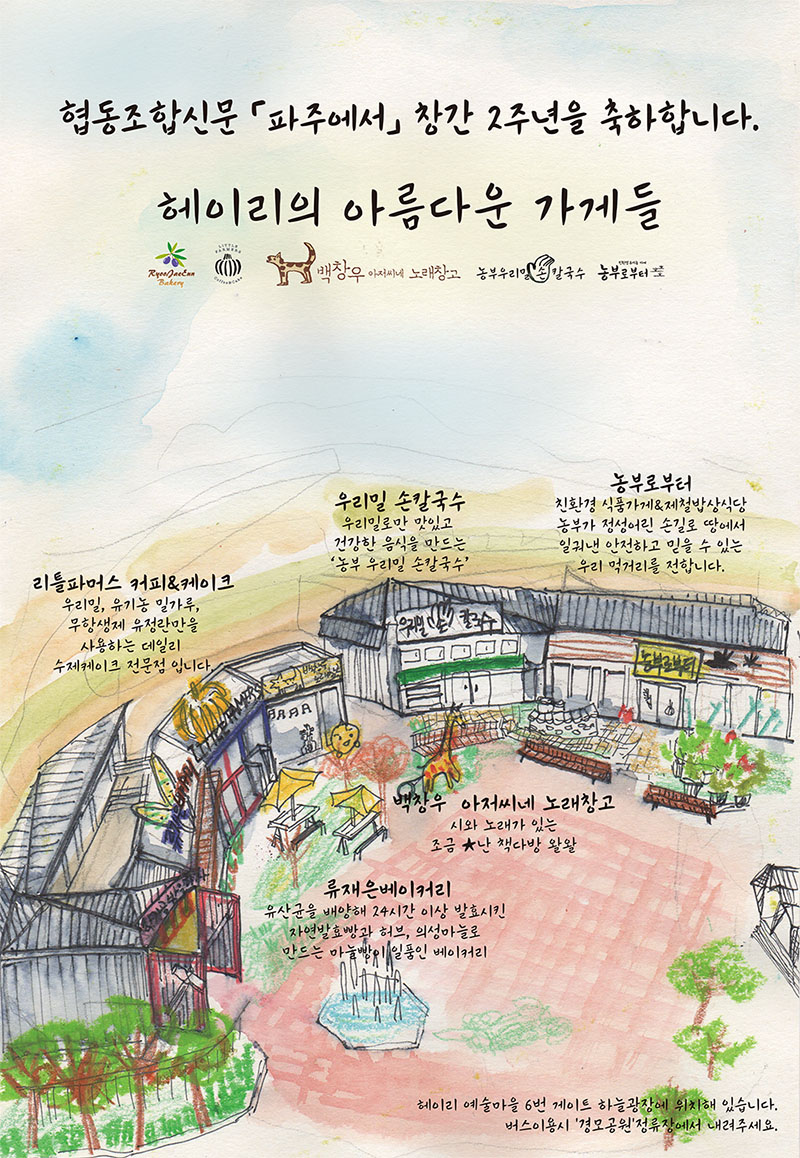 협동조합신문 「파주에서」 창간 2주년을 축하합니다.
헤이리의 아름다운 가게들
RyooJaeEun
Bakery
LITTLE FARMERS
Coffee&Cake
백창우 아저씨네 노래창고
농부우리밀 손칼국수
농부로부터
농부로부터
친환경 식품가게&제철밥상식당
농부가 정성어린 손길로 땅에서
일궈낸 안전하고 믿을 수 있는
우리 먹거리를 전합니다.
우리밀 손칼국수
우리밀로만 맛있고
건강한 음식을 만드는
'농부 우리밀 손칼국수'
리틀파머스 커피&케이크
우리밀, 유기농 밀가루,
무항생제 유정란만을
사용하는 데일리
수제케이크 전문점 입니다.
우리밀 손 칼국수
농부로부터
백창우 아저씨네 노래창고
시와 노래가 있는
조금 ★난 책다방 왈왈
류재은베이커리
유산균을 배양해 24시간 이상 발효시킨
자연발효빵과 허브, 의성마늘로
만드는 마늘빵이 일품인 베이커리
헤이리 예술마을 6번 게이트 하늘광장에 위치해 있습니다.
버스이용시 '경모공원'정류장에서 내려주세요.